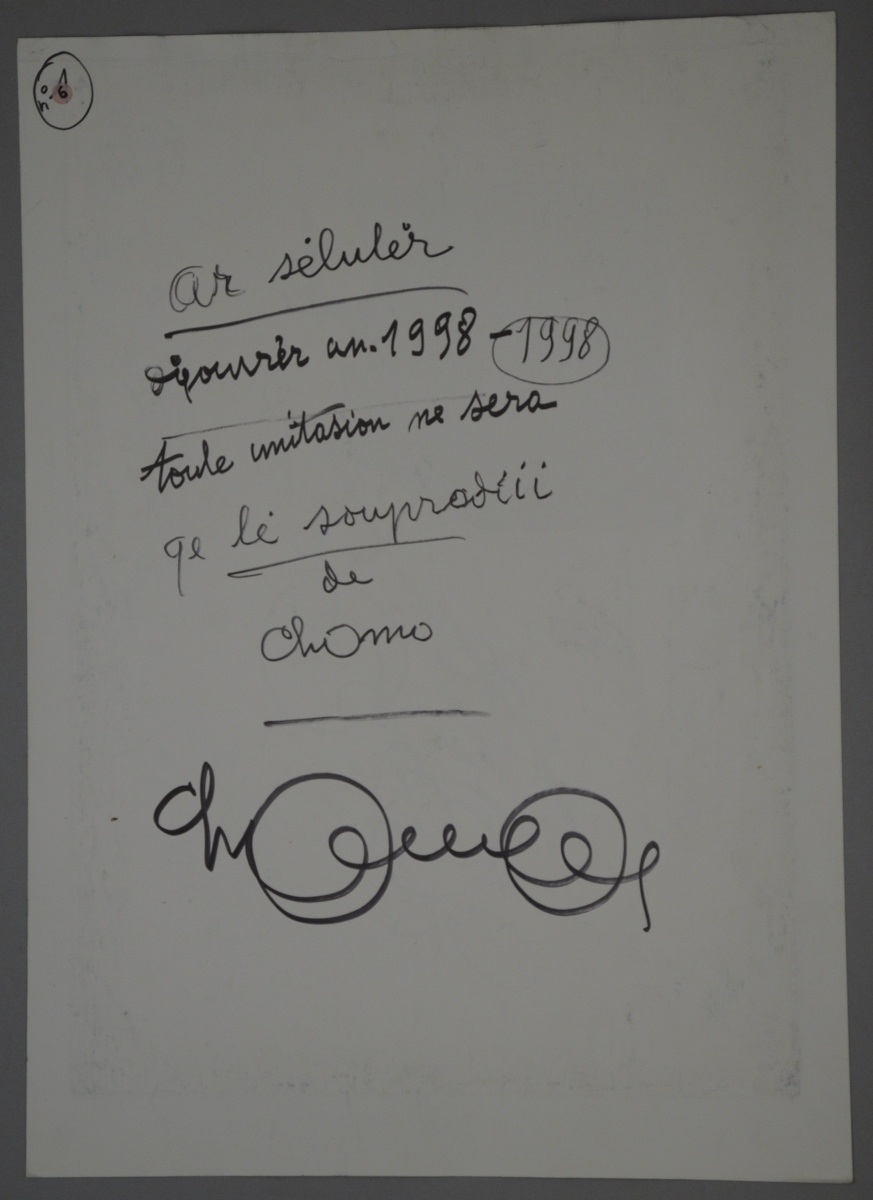 on. 6
ar sélulèr
déqouvrèr an. 1998 - 1998
toute imitasion ne sera
qe lé souprodiii
de
chOmo
chOmo